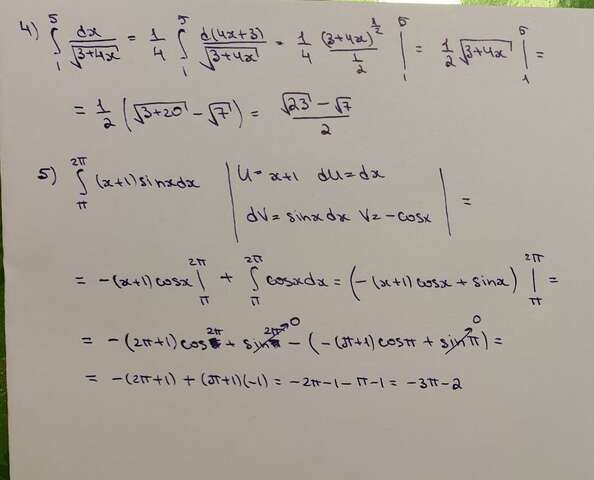 4) ∫₁⁵ dx/√(3+4x) = 1/4 ∫₁⁵ d(4x+3)/√(3+4x) = 1/4 (3+4x)^(1/2)/(1/2) |₁⁵ = 1/2 √(3+4x) |₁⁵ =
= 1/2 (√(3+20) - √7) = (√23 - √7)/2
5) ∫_π^2π (x+1) sinx dx | U = x+1 dU = dx
dV = sinx dx V = -cosx | =
= -(x+1) cosx |_π^2π + ∫_π^2π cosx dx = (-(x+1) cosx + sinx) |_π^2π =
= -(2π+1) cos 2π + sin 2π⁰ - (-(π+1) cosπ + sinπ⁰) =
= -(2π+1) + (π+1)(-1) = -2π-1-π-1 = -3π-2